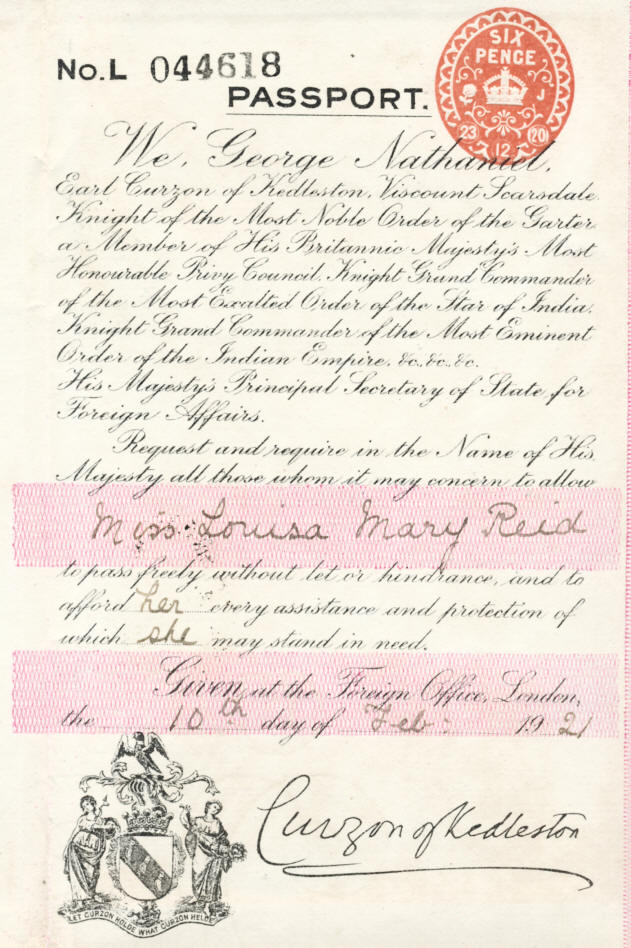 No. L 044618
SIX
PENCE
J
23 20
12
PASSPORT.
We, George Nathaniel,
Earl Curzon of Kedleston, Viscount Scarsdale,
Knight of the Most Noble Order of the Garter,
a Member of His Britannic Majesty's Most
Honourable Privy Council, Knight Grand Commander
of the Most Exalted Order of the Star of India,
Knight Grand Commander of the Most Eminent
Order of the Indian Empire, &c. &c. &c.
His Majesty's Principal Secretary of State for
Foreign Affairs.
Request and require in the Name of His
Majesty all those whom it may concern to allow
Miss Louisa Mary Reid
to pass freely without let or hindrance, and to
afford her every assistance and protection of
which she may stand in need.
Given at the Foreign Office, London,
the 10th day of Feb: 1921
Curzon of Kedleston
LET CURZON HOLDE WHAT CURZON HELDE